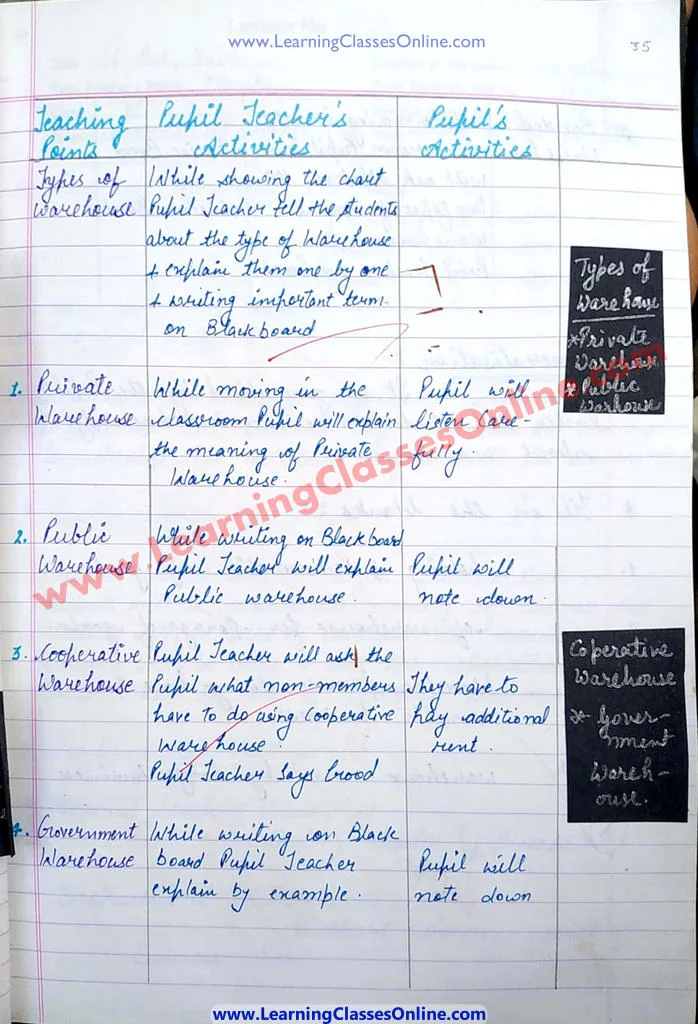 www.LearningClassesOnline.com
35
Teaching Points
Pupil Teacher's Activities
Pupil's Activities
Types of
warehouse
While showing the chart
Pupil Teacher tell the students
about the type of Warehouse
+ explain them one by one
+ writing important term.
on Blackboard
Types of
Warehouse
*Private
Warehouse
* Public
Warhouse
1. Private
Warehouse
While moving in the
classroom Pupil will explain
the meaning of Private
Warehouse.
Pupil will
listen Care-
fully.
2. Public
Warehouse
While writing on Blackboard
Pupil Teacher will explain
Public warehouse.
Pupil will
note down.
3. Cooperative
Warehouse
Pupil Teacher will ask the
Pupil what non-members
have to do using Cooperative
warehouse.
Pupil Teacher Says Good
They have to
pay additional
rent.
Coperative
Warehouse
* Gover-
nment
Wareh-
ouse.
4. Government
Warehouse
While writing on Black
board Pupil Teacher
explain by example.
Pupil will
note down
www.LearningClassesOnline.com
www.LearningClassesOnline.com